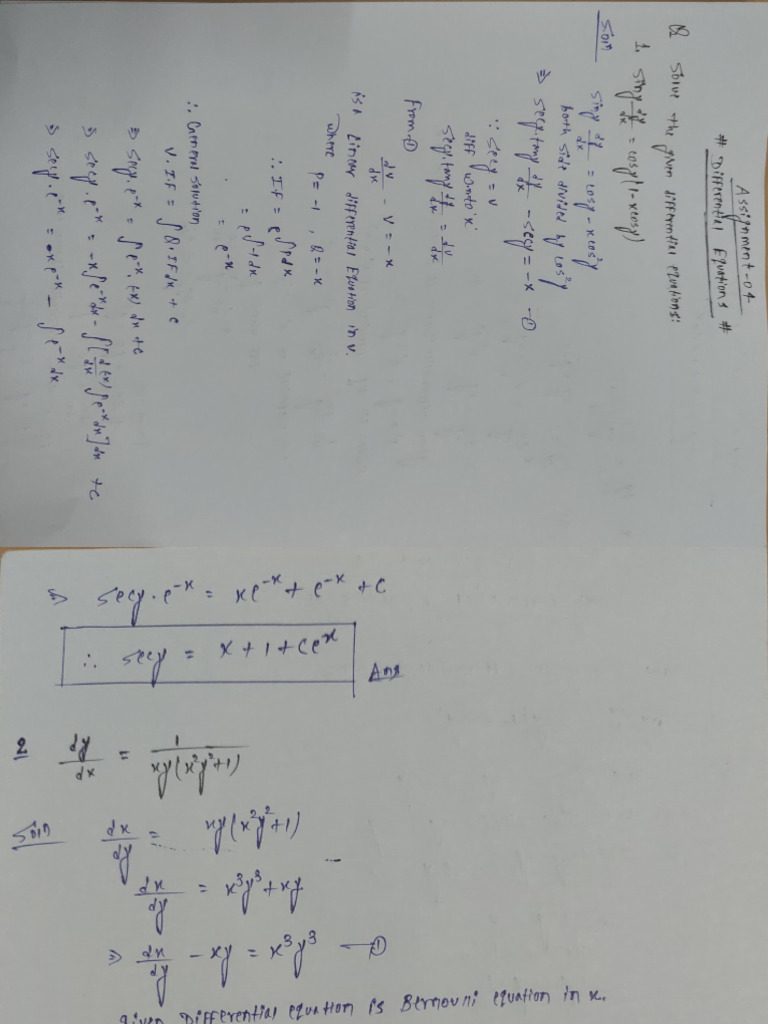 Assignment-04
# Differential Equations #
Q Solve the given differential equations:
1. siny dy/dx = cosy(1-xcosy)
Soln siny dy/dx = cosy - xcos²y
both side divided by cos²y
⇒ secy.tany dy/dx - secy = -x —①
∵ secy = v
diff w.r.to 'x'
secy.tany dy/dx = dv/dx
from ①
dv/dx - v = -x
is a Linear differential Equation in v.
where P = -1 , Q = -x
∴ If = e^∫Pdx
= e^∫-1dx
= e^-x
∴ General solution
v. If = ∫Q.If dx + c
⇒ secy. e^-x = ∫e^-x.(-x) dx + c
⇒ secy. e^-x = -x∫e^-x dx - ∫[d(-x)/dx ∫e^-x dx]dx + c
⇒ secy. e^-x = x e^-x - ∫e^-x dx
⇒ secy. e^-x = xe^-x + e^-x + c
∴ secy = x + 1 + ce^x Ans
2 dy/dx = 1/xy(x²y²+1)
Soln dx/dy = xy(x²y²+1)
dx/dy = x³y³ + xy
⇒ dx/dy - xy = x³y³ —①
given Differential equation is Bernouni equation in x.